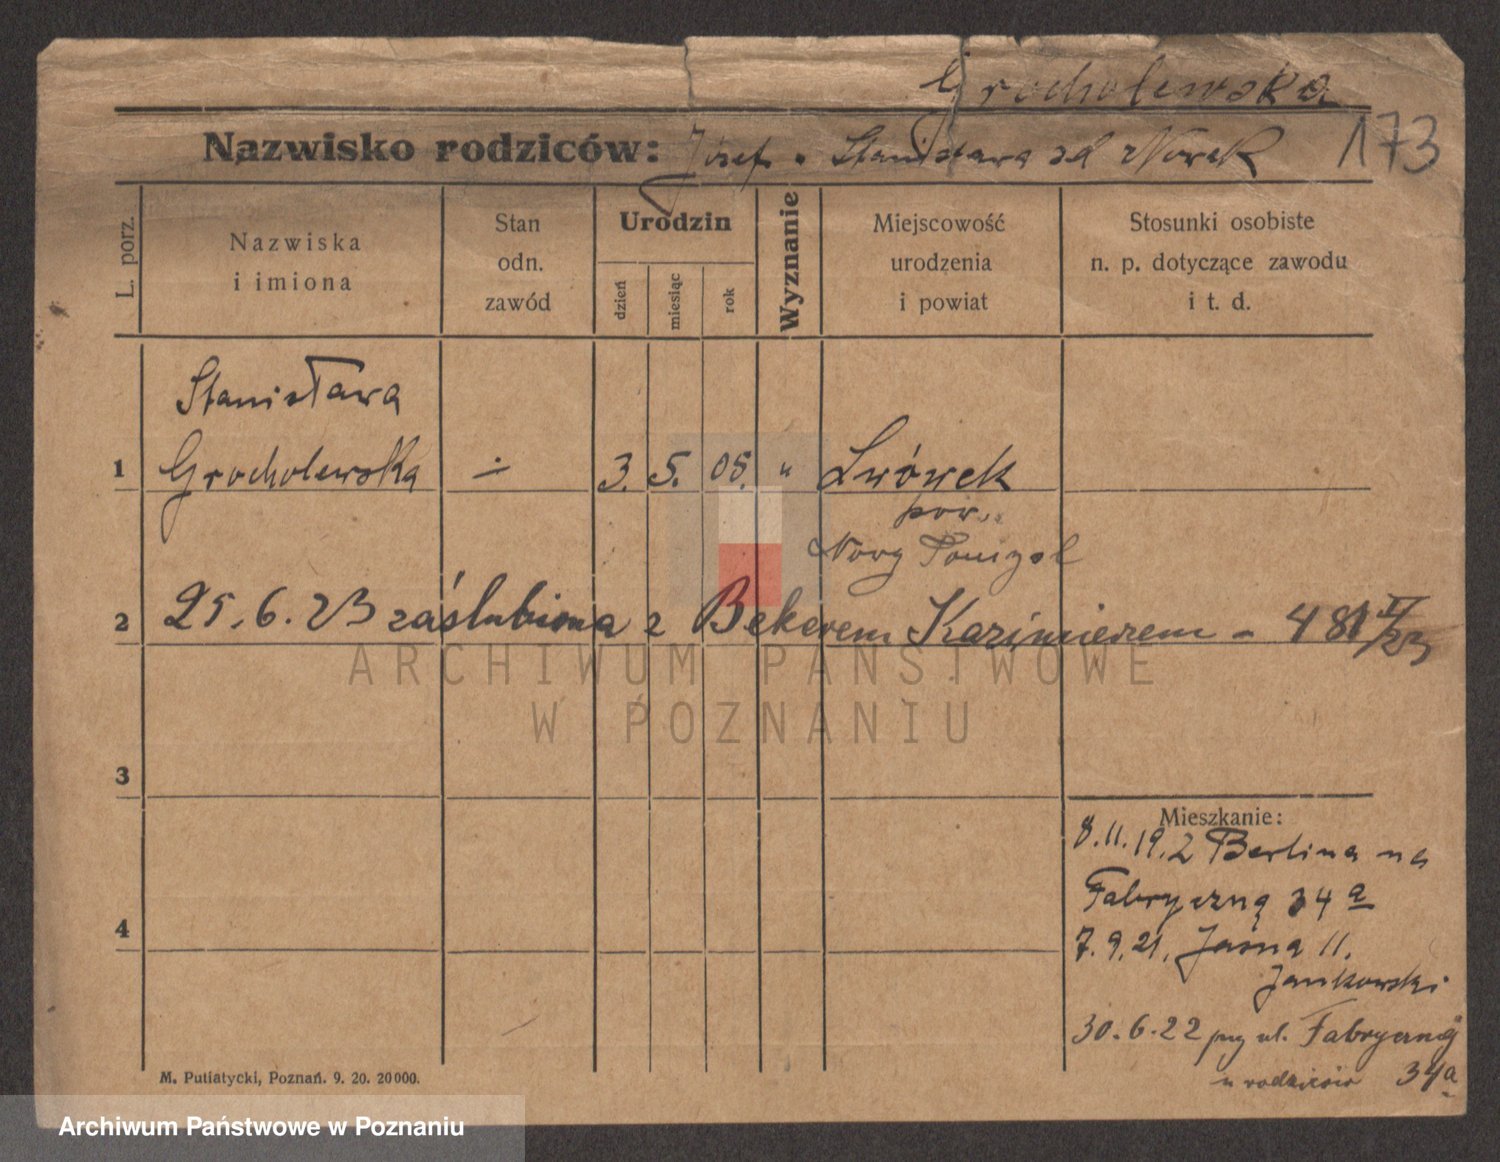 Grocholewska
Nazwisko rodziców: Józef . Stanisława zd Nowak
173
L. porz.
Nazwiska
i imiona
Stan
odn.
zawód
Urodzin
dzień
miesiąc
rok
Wyznanie
Miejscowość
urodzenia
i powiat
Stosunki osobiste
n. p. dotyczące zawodu
i t. d.
Stanisława
1 Grocholewska ÷ 3. 5. 05. " Lwówek
pow.
Nowy Tomyśl
2 25. 6. 23 zaślubiona z Bekerem Kazimierzem - 481
ARCHIWUM PAŃSTWOWE
W POZNANIU
3
4
Mieszkanie:
8.11.19. z Berlina na
Fabryczną 34 a
7. 9. 21. Jasna 11.
Jankowski
30. 6. 22 przy ul. Fabrycznej
u rodziców 34a
M. Putiatycki, Poznań. 9. 20. 20000.
Archiwum Państwowe w Poznaniu